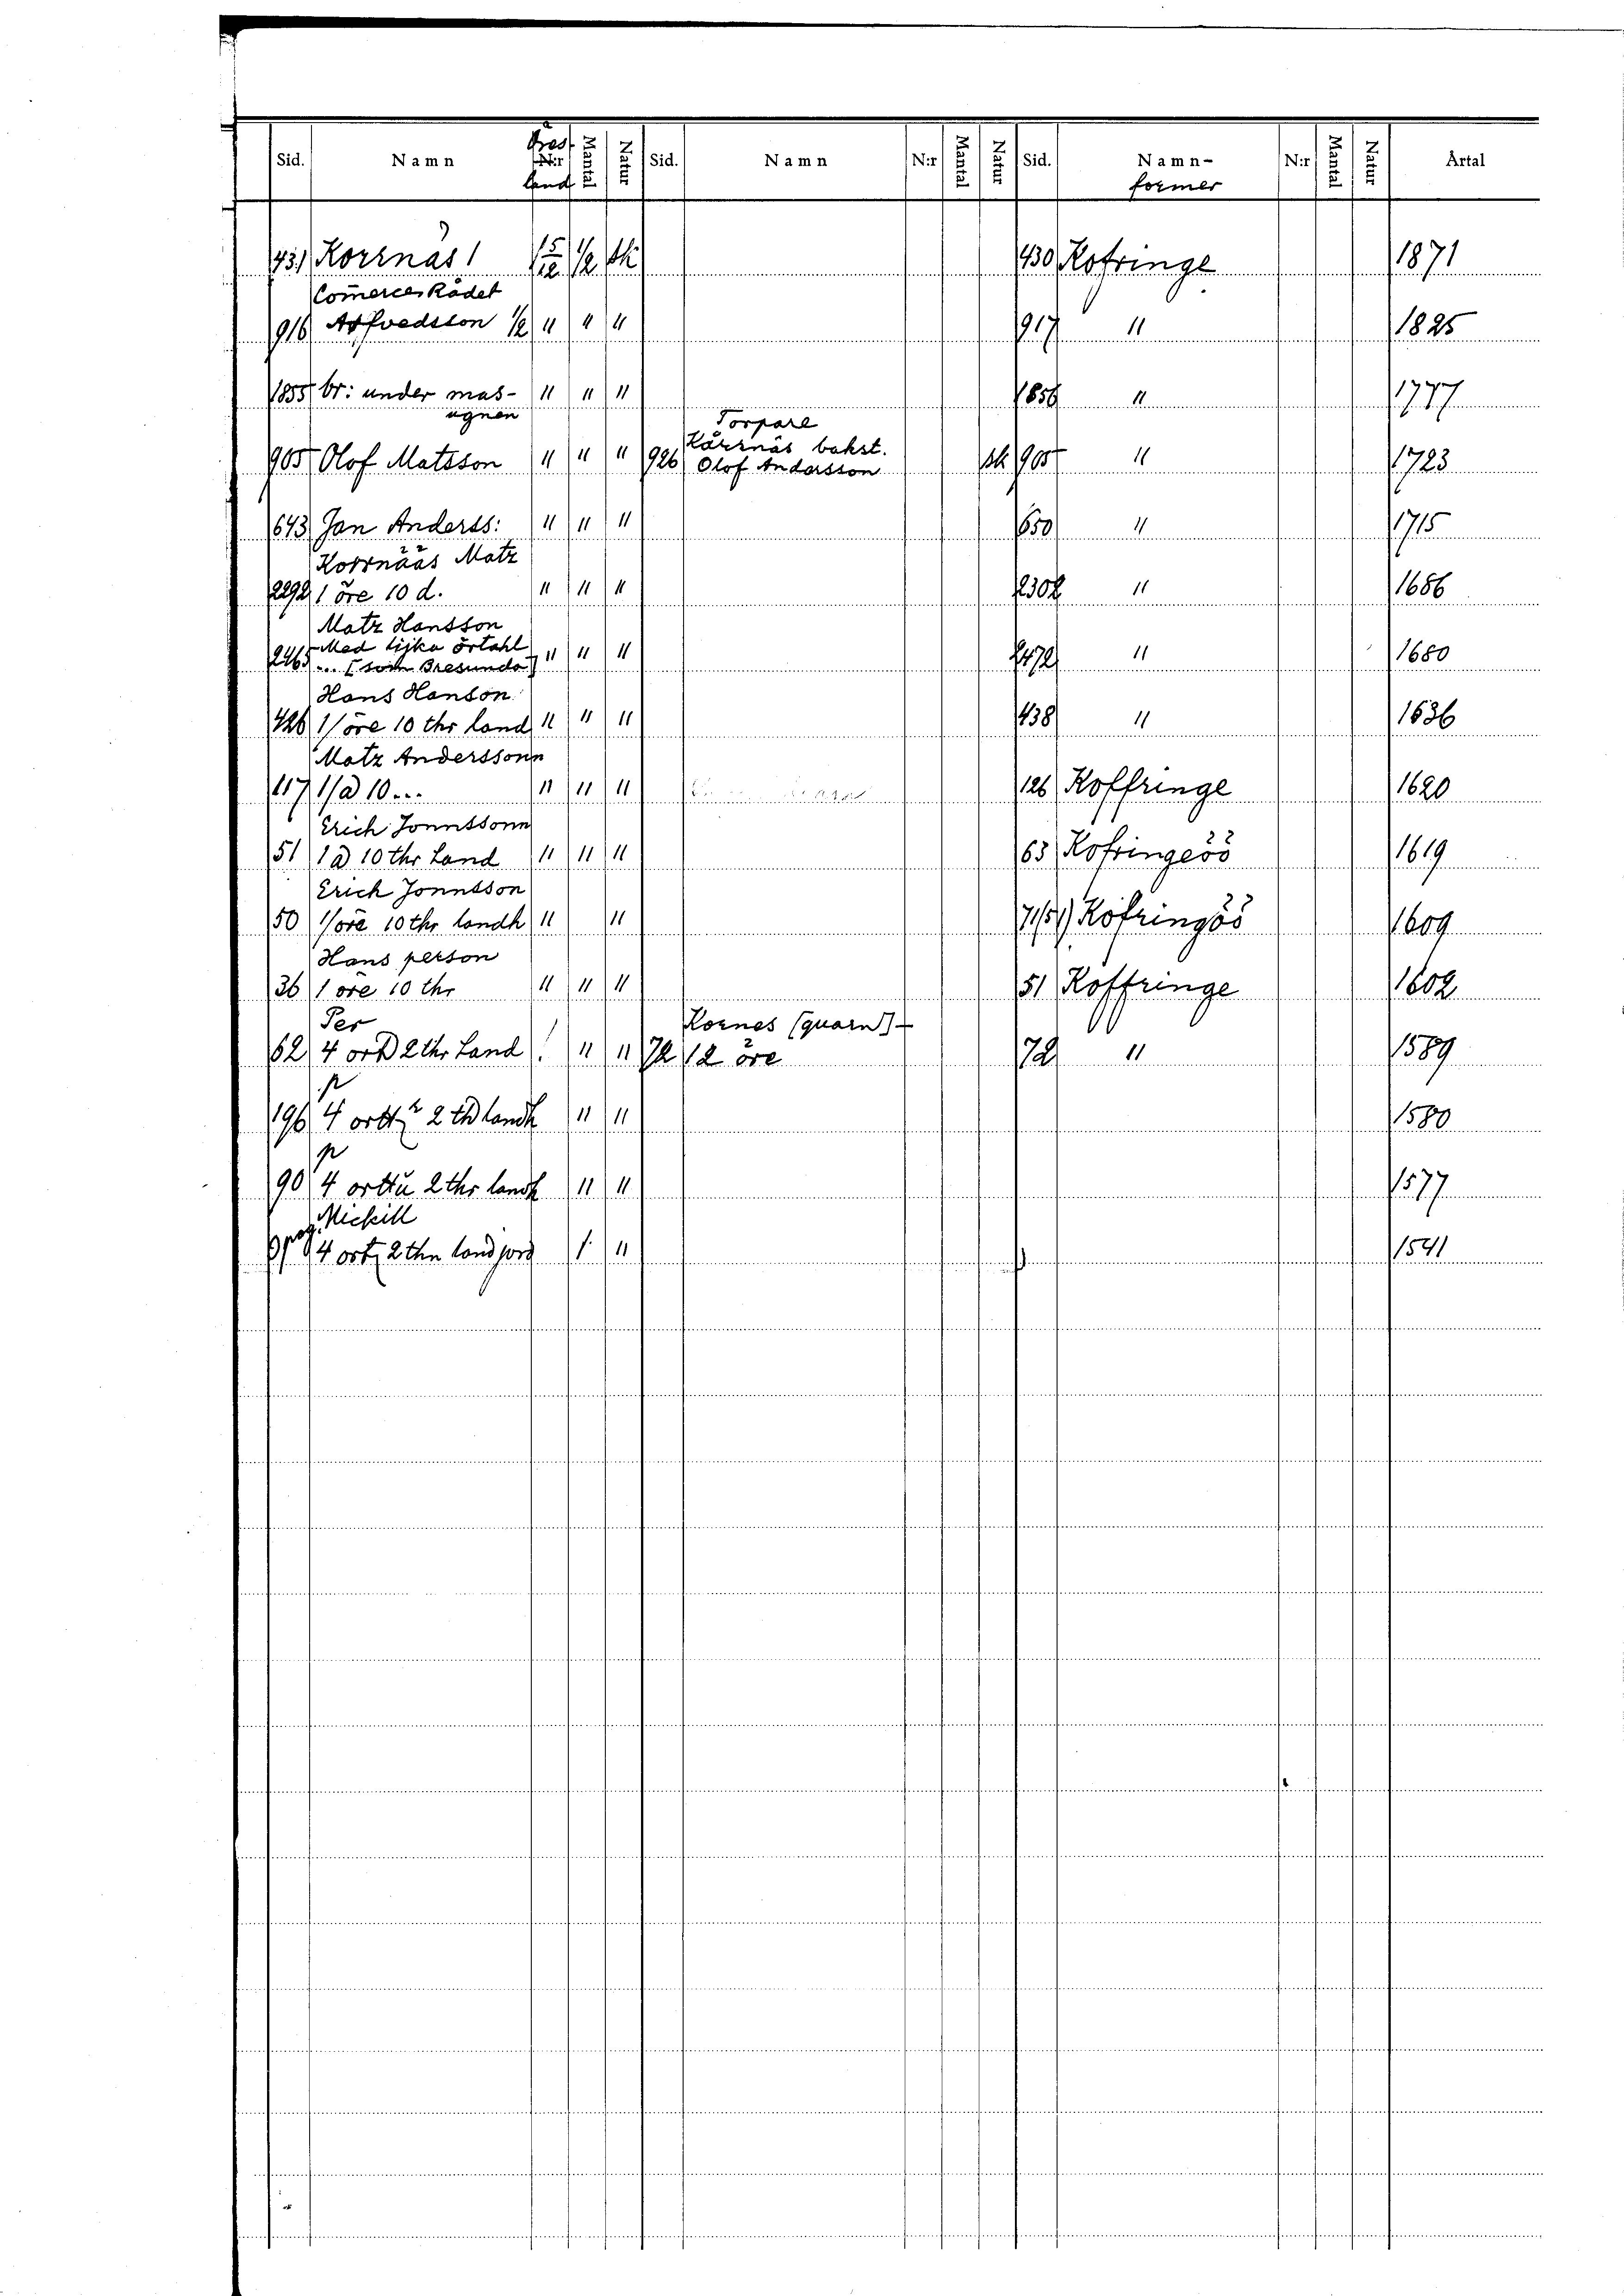 Sid. Namn N:r land Mantal Natur Sid. Namn N:r Mantal Natur Sid. Namn- N:r Mantal Natur Årtal
former
431 Korrnäs 1 1/2 sk 430 Kofringe 1871
Comerce Rådet
916 Arfvedsson 1/2 " " " 917 " 1825
1855 br: under mas- " " " 1856 " 1777
ugnen
Torpare
Kärrnäs bakst.
905 Olof Matsson " " " 926 Olof Andersson sk 905 " 1723
643 Jan Anderss: " " " 650 " 1715
Korrnääs Matz
2292 1 öre 10 d. " " " 2302 " 1686
Matz Hansson
Med lijka örtahl
2465 ... [som Bresunda] " " " 2472 " 1680
Hans Hanson
426 1 öre 10 thr land " " " 438 " 1636
Matz Anderssonn
117 1 a 10... " " " 126 Koffringe 1620
Erich Jonnssonn
51 1 a 10 thr Land " " " 63 Kofringeöö 1619
Erich Jonnsson
50 1 öre 10 thr landh " " 71(51) Kofringöö 1609
Hans person
36 1 öre 10 thr " " " 51 Koffringe 1602
Per Kornes (quarn)-
62 4 ort 2 thr Land " " 72 12 öre 72 " 1589
p
196 4 ortt 2 th landh " " 1580
p
90 4 orttu 2 thr landh " " 1577
Mickill
4 ort 2 thn land jord 1 " 1541